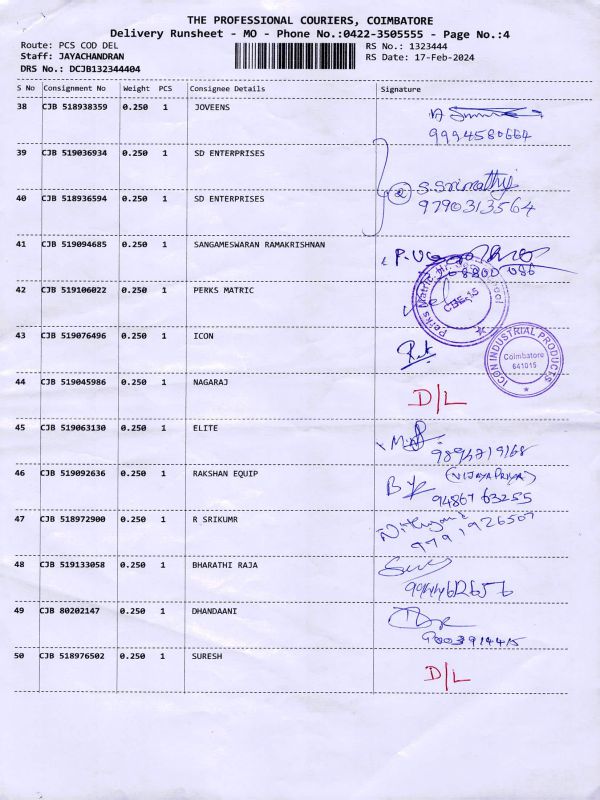 THE PROFESSIONAL COURIERS, COIMBATORE
Delivery Runsheet - MO - Phone No.:0422-3505555 - Page No.:4
Route: PCS COD DEL RS No.: 1323444
Staff: JAYACHANDRAN RS Date: 17-Feb-2024
DRS No.: DCJB132344404
S No Consignment No Weight PCS Consignee Details Signature
38 CJB 518938359 0.250 1 JOVEENS
9994580664
39 CJB 519036934 0.250 1 SD ENTERPRISES
S.Srimathy
40 CJB 518936594 0.250 1 SD ENTERPRISES
9790313564
41 CJB 519094685 0.250 1 SANGAMESWARAN RAMAKRISHNAN
42 CJB 519106022 0.250 1 PERKS MATRIC
Perks Matric CBE-15
43 CJB 519076496 0.250 1 ICON
ICON INDUSTRIAL PRODUCTS Coimbatore 641015
44 CJB 519045986 0.250 1 NAGARAJ D/L
45 CJB 519063130 0.250 1 ELITE
46 CJB 519092636 0.250 1 RAKSHAN EQUIP
(VIJAYAPRIYA)
94867 63255
47 CJB 518972900 0.250 1 R SRIKUMR
9791926507
48 CJB 519133058 0.250 1 BHARATHI RAJA
49 CJB 80202147 0.250 1 DHANDAANI
9003914415
50 CJB 518976502 0.250 1 SURESH D/L